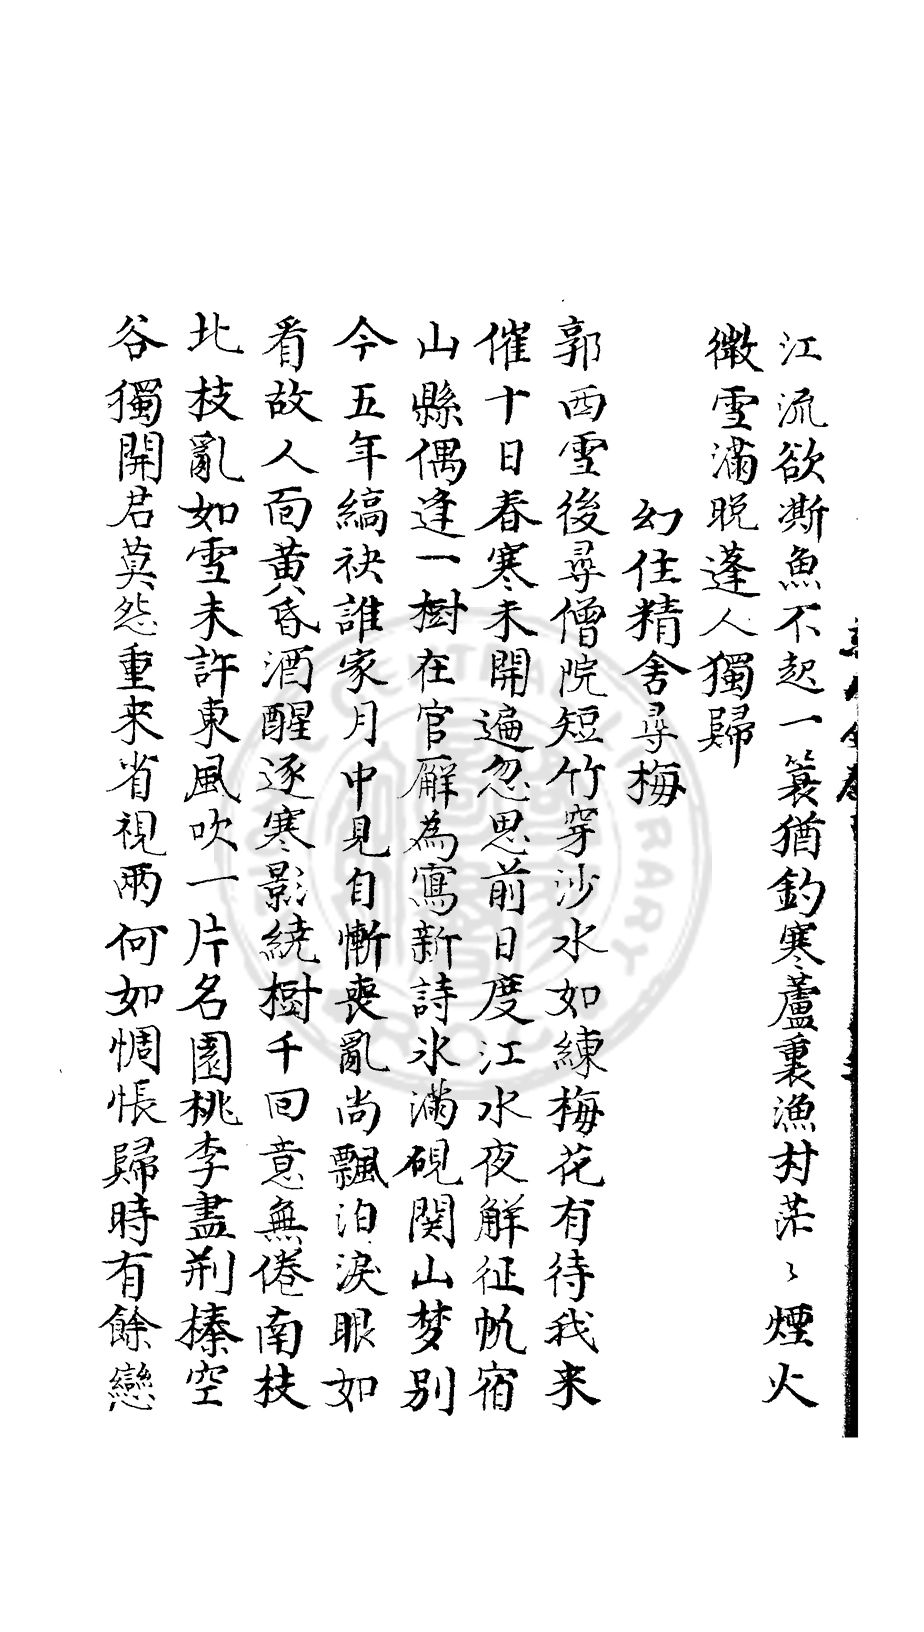 江流欲澌魚不起一簑猶釣寒蘆裏漁村茫〻煙火
微雪滿晚蓬人獨歸
幻住精舍尋梅
郭西雪後尋僧院短竹穿沙水如練梅花有待我来
催十日春寒未開遍忽思前日度江水夜解征帆宿
山縣偶逢一樹在官廨為寫新詩氷滿硯関山梦别
今五年縞袂誰家月中見自慚喪亂尚飄泊淚眼如
看故人面黄昏酒醒逐寒影繞樹千回意無倦南枝
北枝亂如雪未許東風吹一片名園桃李盡荆榛空
谷獨開君莫怨重来省視兩何如惆悵歸時有餘戀